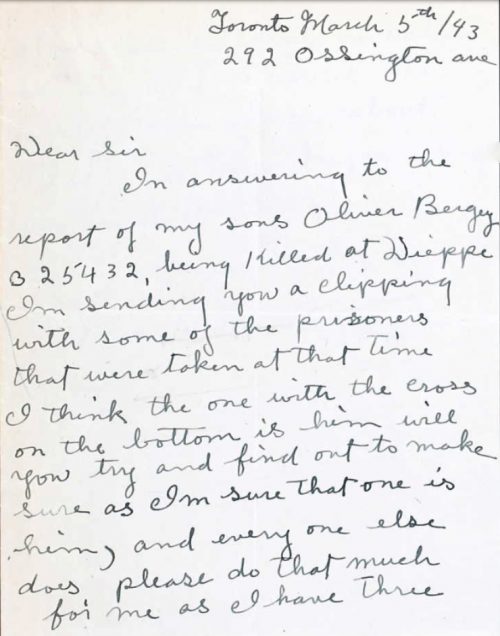 Toronto March 5th/43
292 Ossington ave
Dear Sir
In answering to the
report of my sons Oliver Bergey
B 25432, being Killed at Dieppe
Im sending you a clipping
with some of the prisoners
that were taken at that time
I think the one with the cross
on the bottom is him will
you try and find out to make
sure as Im sure that one is
him, and every one else
does please do that much
for me as I have three